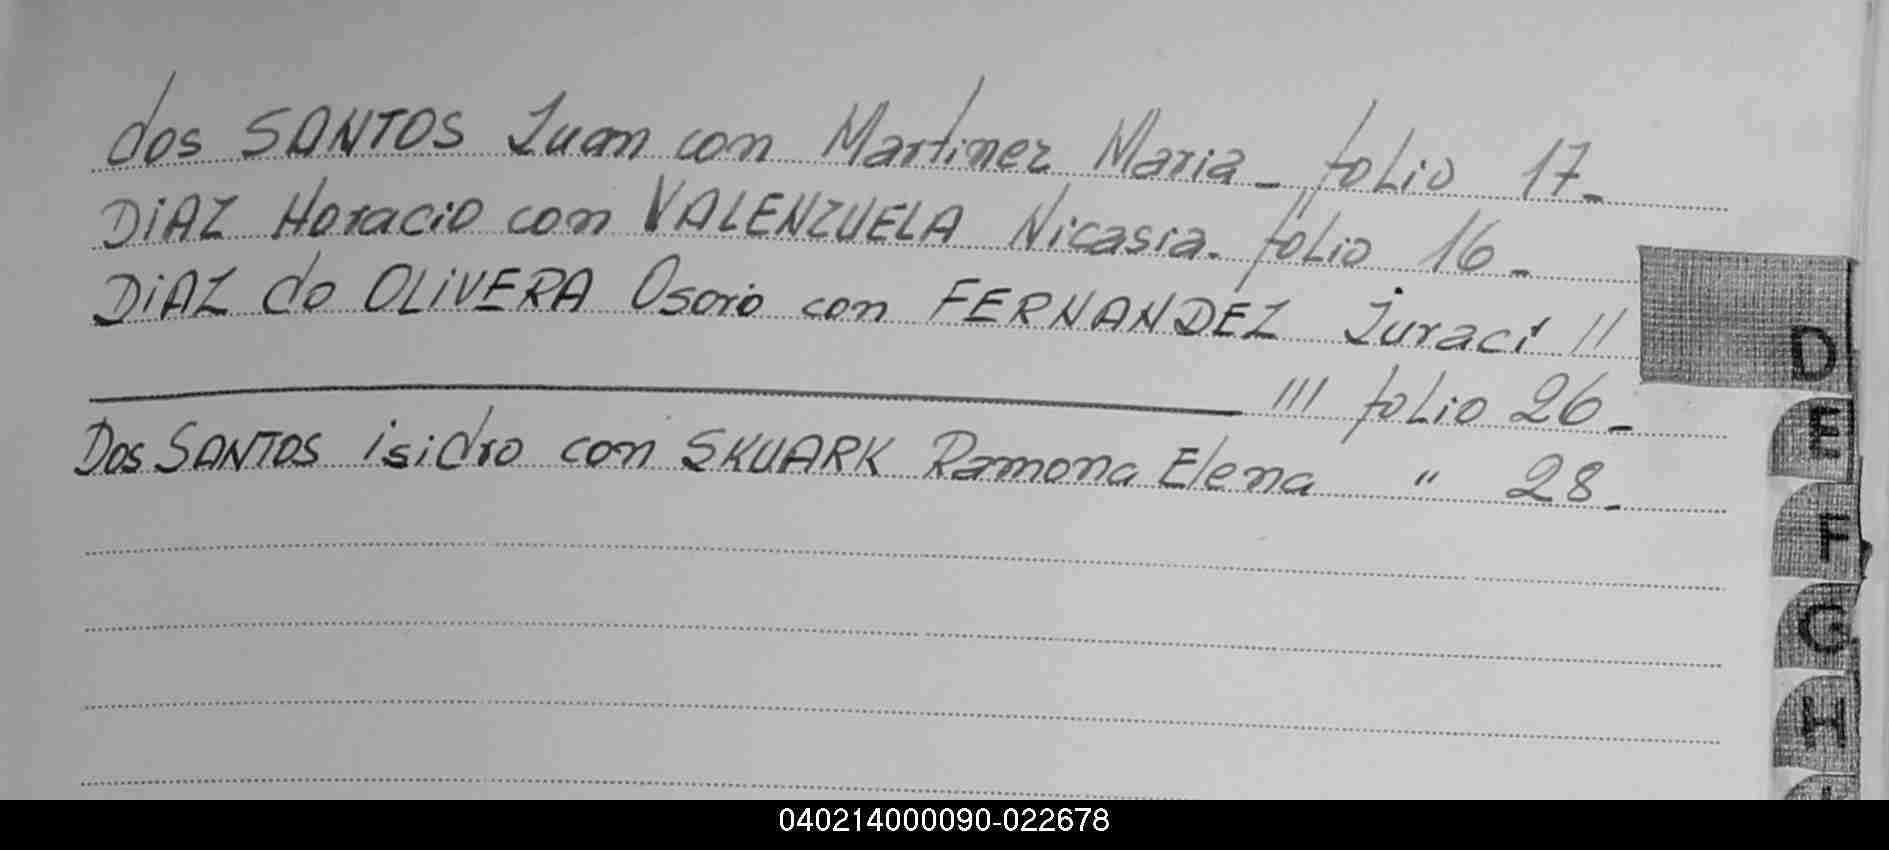 dos SANTOS Juan con Martinez Maria - folio 17 -
DiAZ Horacio con VALENZUELA Nicasia. folio 16 -
DiAZ do OLiVERA Osorio con FERNANDEZ Juraci //
/// folio 26 -
Dos SANTOS isidro con SKUARK Ramona Elena " 28 -
D
E
F
G
H
040214000090-022678